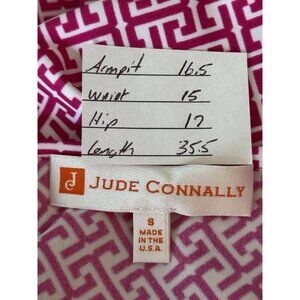 Armpit 16.5
Waist 15
Hip 17
Length 35.5
J
JUDE CONNALLY
S
MADE
IN THE
U.S.A.